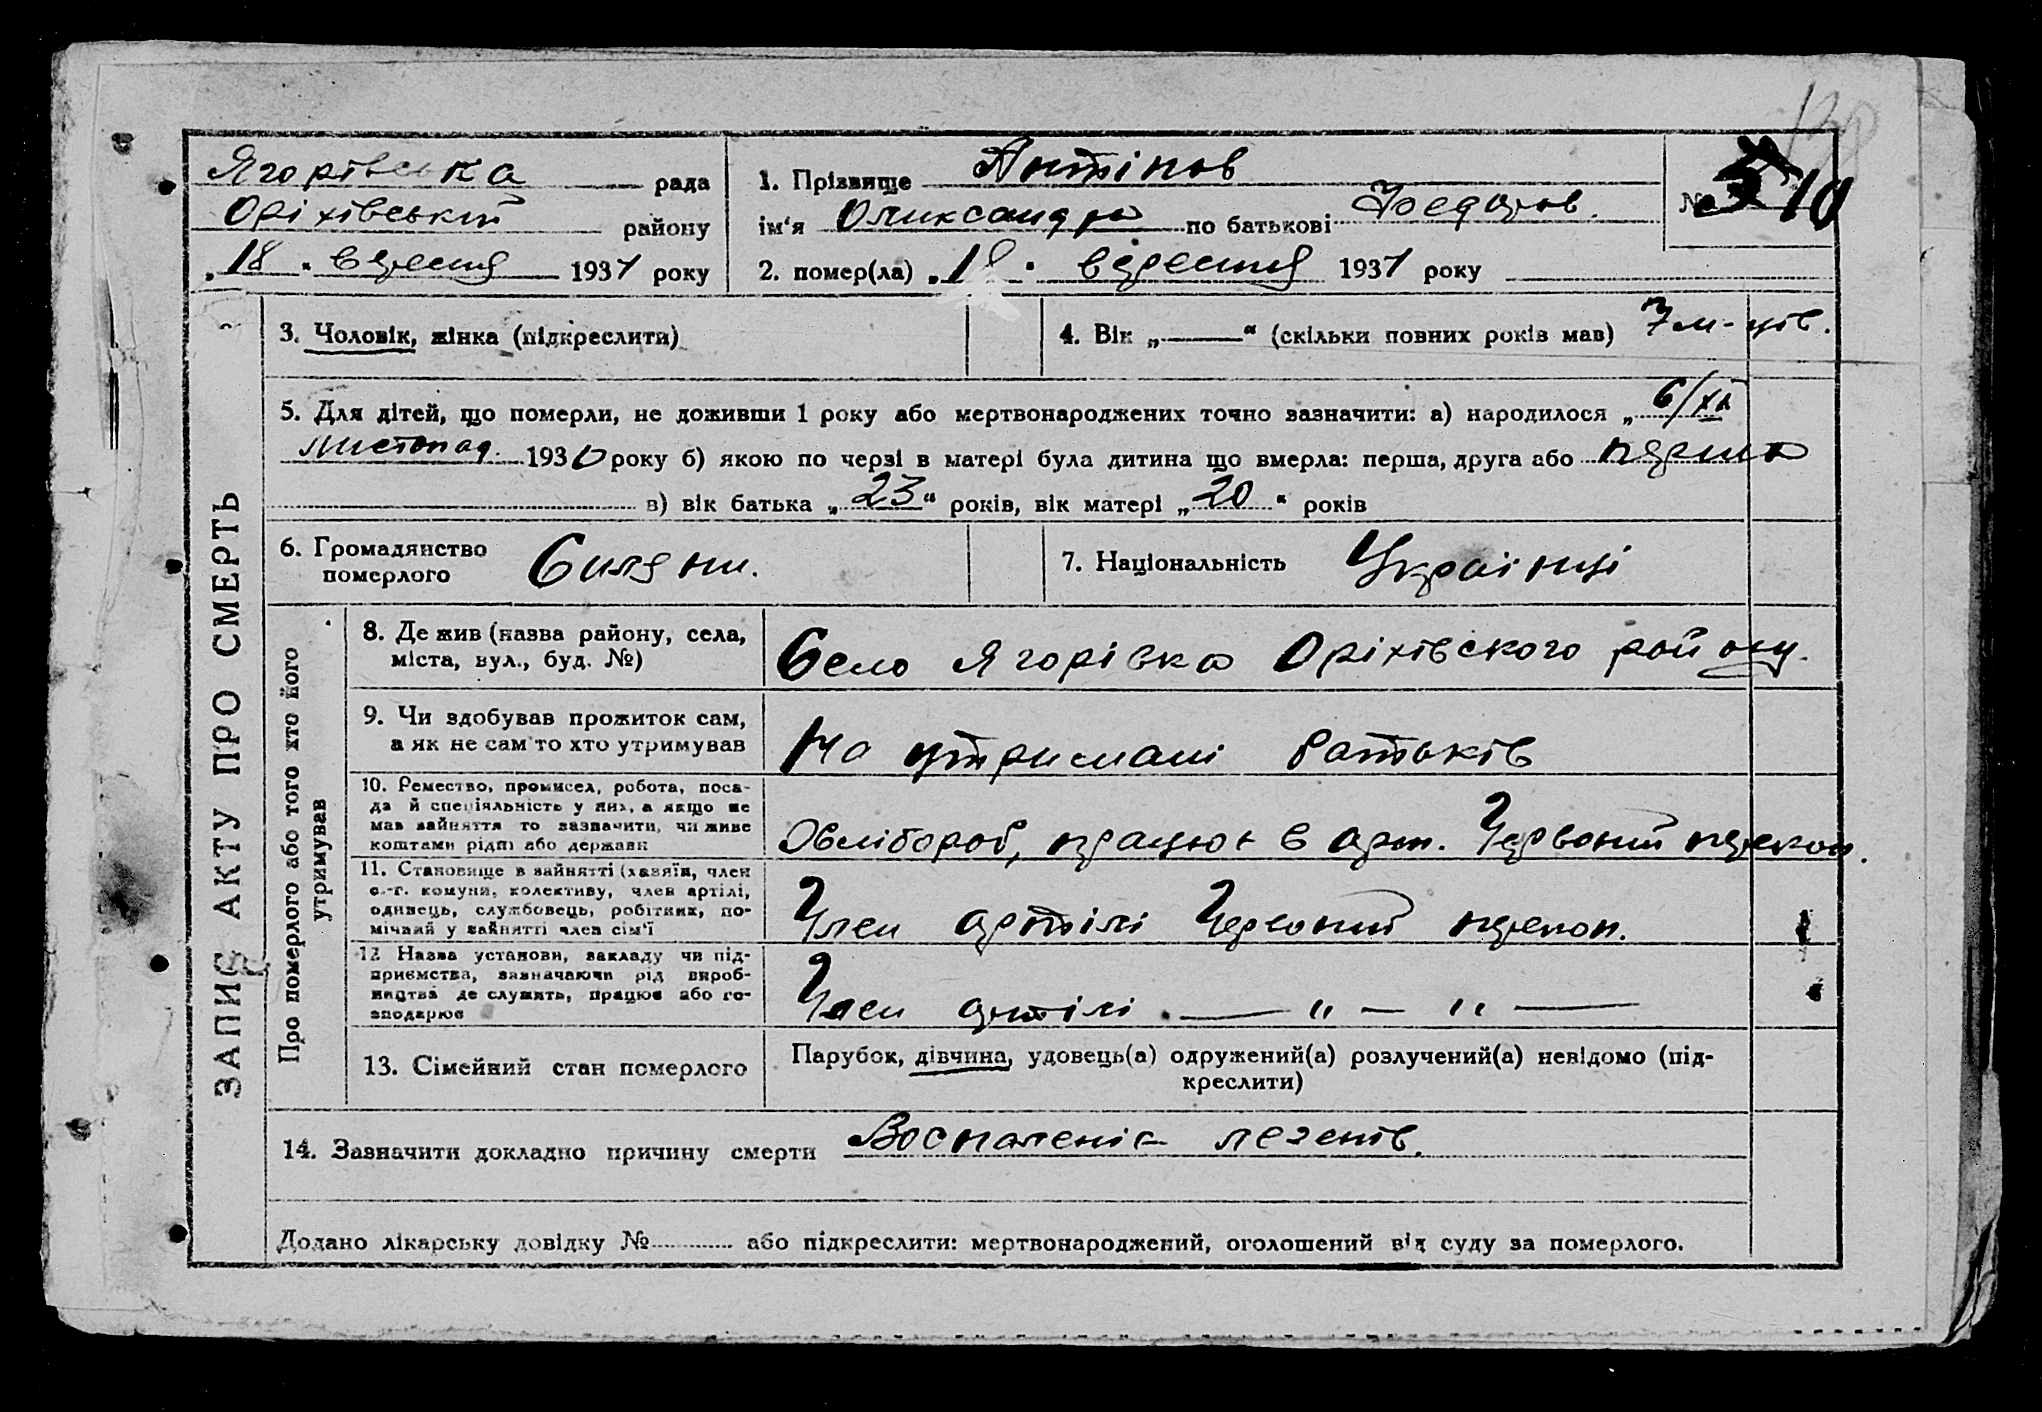 Ягорівська рада
Оріхівський району
„18“ вересня 1931 року
1. Прізвище Антіпов
ім'я Олександр по батькові Федоров.
2. помер(ла) „18“ вересня 1931 року
№ 10
ЗАПИС АКТУ ПРО СМЕРТЬ
3. Чоловік, жінка (підкреслити)
4. Вік „——“ (скільки повних років мав) 7 м-ців.
5. Для дітей, що померли, не доживши 1 року або мертвонароджених точно зазначити: а) народилося „6/XI
листопад. 1930 року б) якою по черзі в матері була дитина що вмерла: перша, друга або перша
в) вік батька „23“ років, вік матері „20“ років
6. Громадянство
померлого Силяни.
7. Національність Українці
Про померлого або того хто його
утримував
8. Де жив (назва району, села,
міста, вул., буд. №)
Село Ягорівка Оріхівского району.
9. Чи здобував прожиток сам,
а як не сам то хто утримував
На утримані батьків
10. Ремество, промисел, робота, поса-
да й спеціяльність у них, а якщо не
мав зайняття то зазначити, чи живе
коштами рідні або держави
Хвлібороб, працює в арт. Червоний перекоп.
11. Становище в зайнятті (хазяїн, член
с.-г. комуни, колективу, член артілі,
одинець, службовець, робітник, по-
мічний у зайнятті член сім'ї
Член артілі Червоний перекоп.
12 Назва установи, закладу чи під-
приємства, зазначаючи рід вироб-
ництва де служить, працює або го-
сподарює
Член артілі . — " — " —
13. Сімейний стан померлого
Парубок, дівчина, удовець(а) одружений(а) розлучений(а) невідомо (під-
креслити)
14. Зазначити докладно причину смерти Воспаленіє легенів.
Додано лікарську довідку № або підкреслити: мертвонароджений, оголошений від суду за померлого.